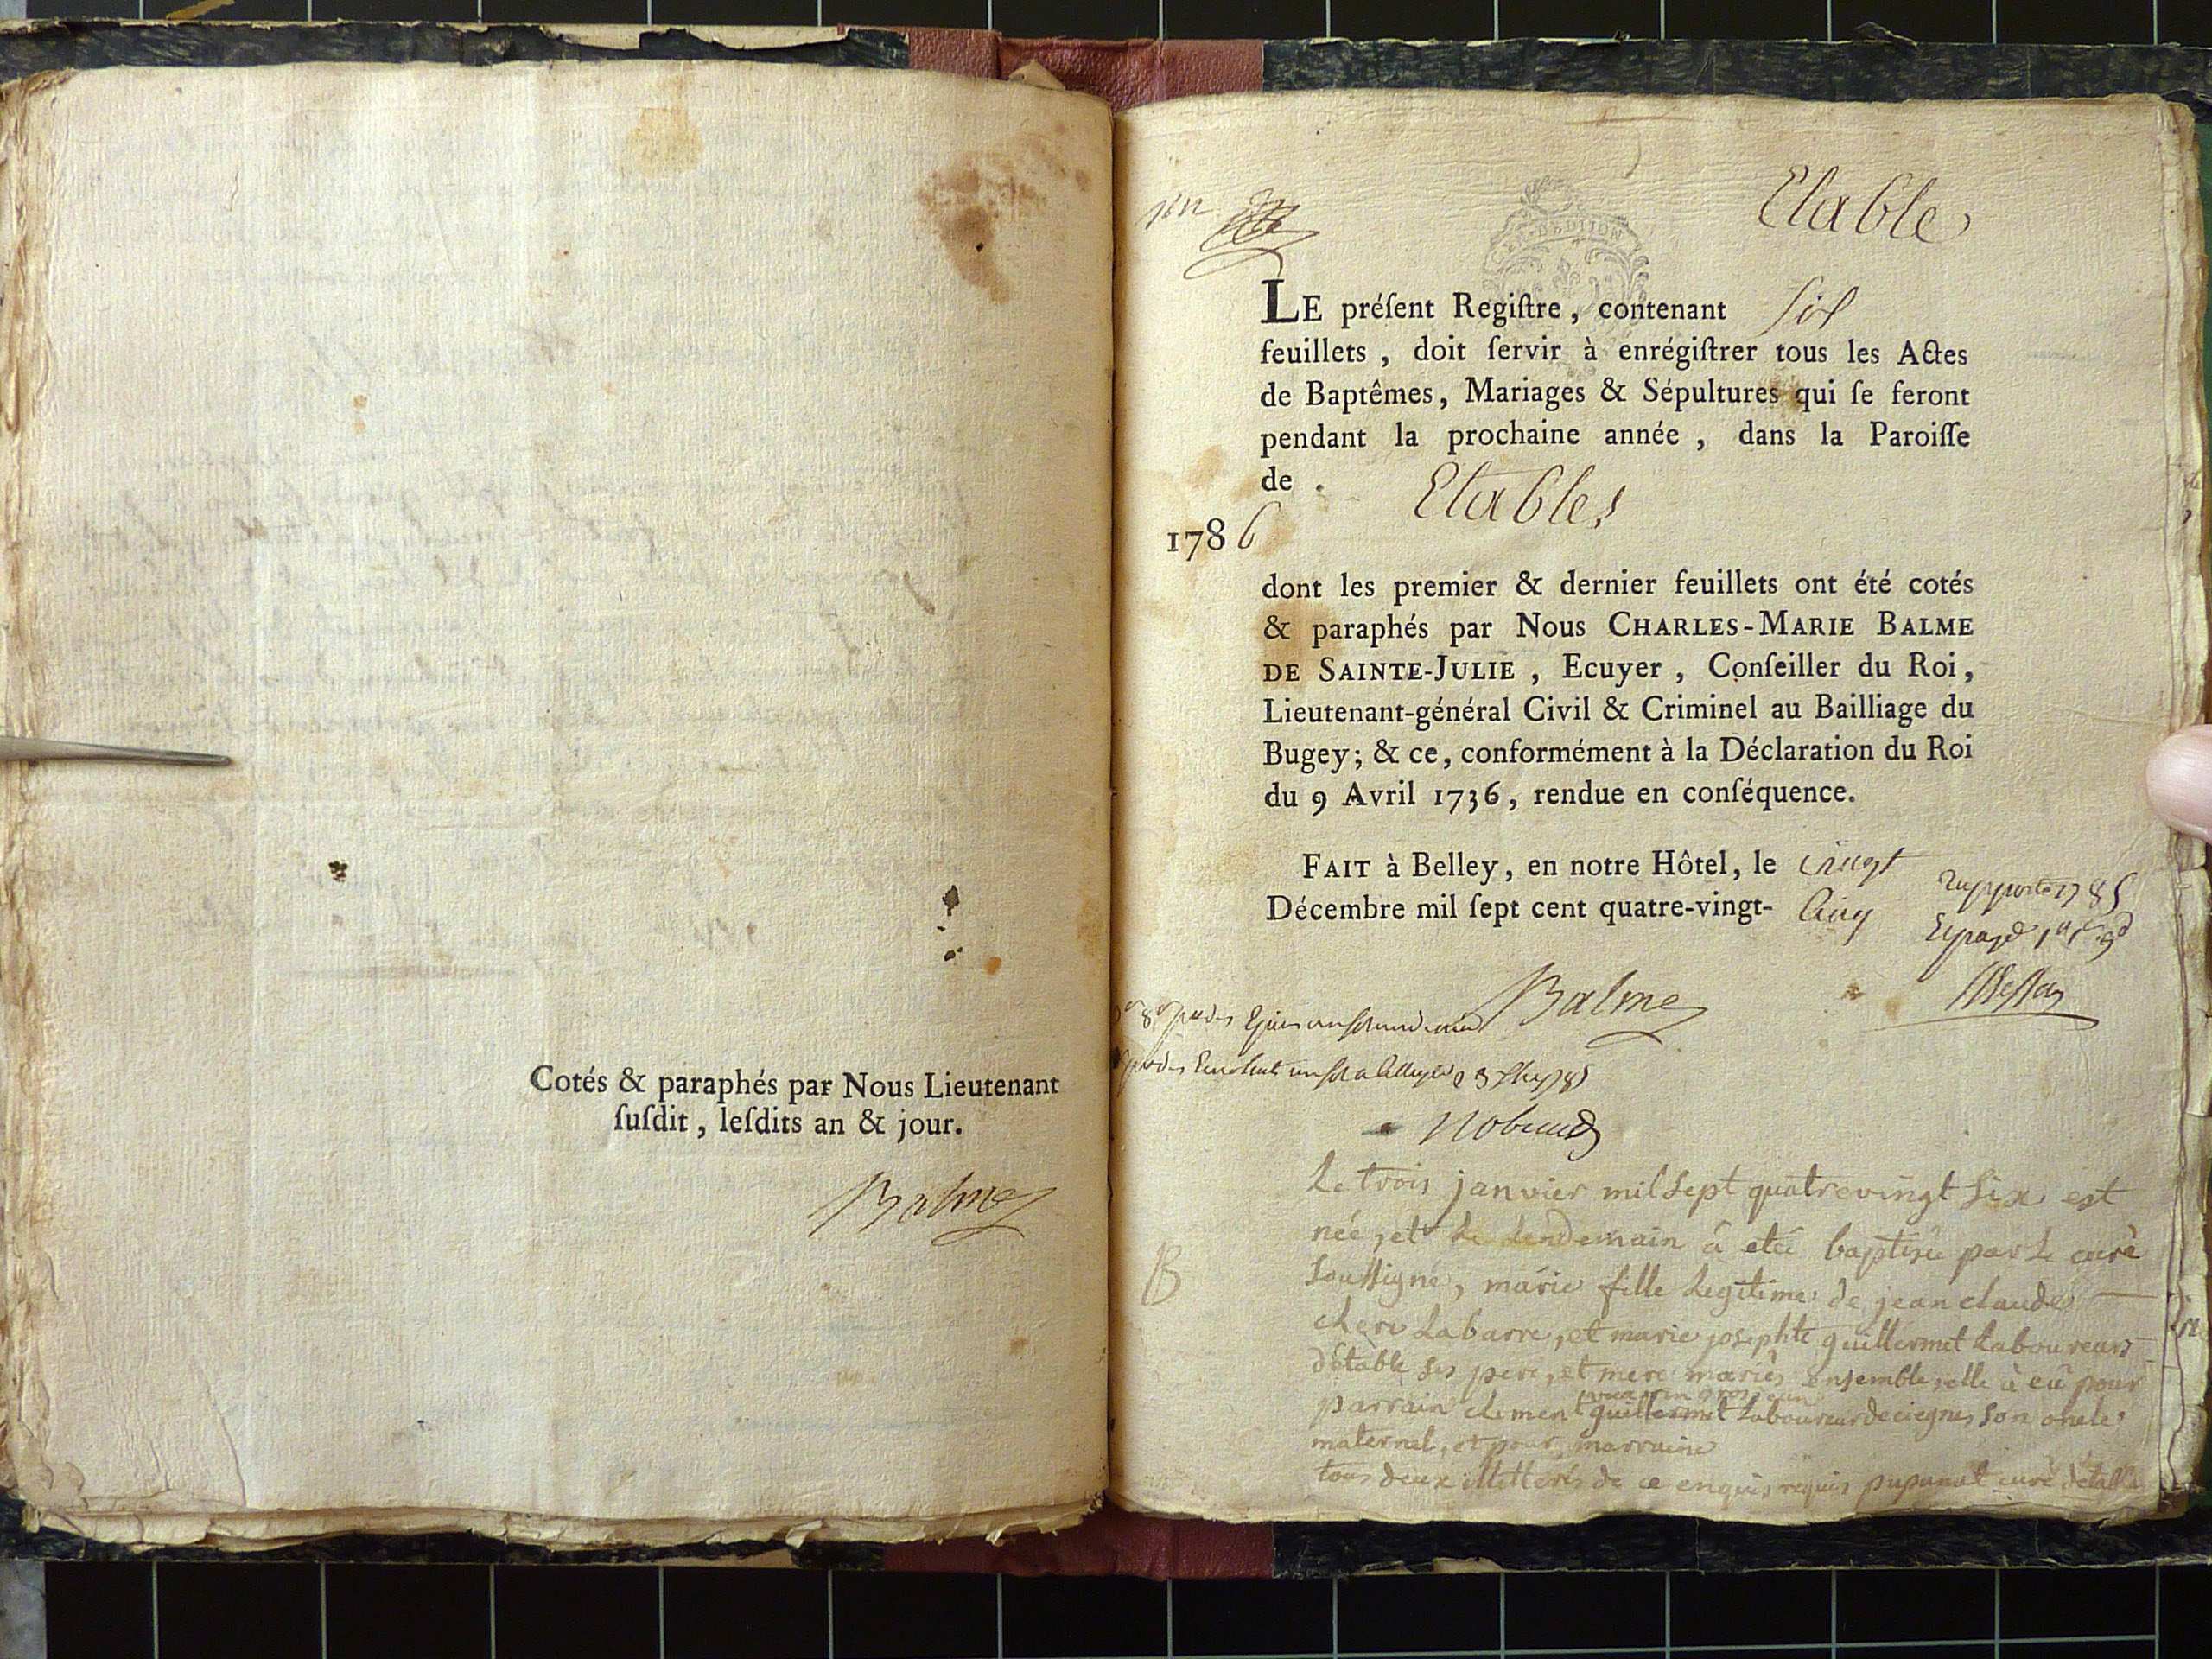 Cotés & paraphés par Nous Lieutenant
ſuſdit, leſdits an & jour.
Balme
Etable
LE préſent Regiſtre, contenant Six
feuillets, doit ſervir à enrégiſtrer tous les Actes
de Baptêmes, Mariages & Sépultures qui ſe feront
pendant la prochaine année, dans la Paroiſſe
de Etables
1786
dont les premier & dernier feuillets ont été cotés
& paraphés par Nous CHARLES-MARIE BALME
DE SAINTE-JULIE, Ecuyer, Conſeiller du Roi,
Lieutenant-général Civil & Criminel au Bailliage du
Bugey; & ce, conformément à la Déclaration du Roi
du 9 Avril 1736, rendue en conſéquence.
FAIT à Belley, en notre Hôtel, le vingt
Décembre mil ſept cent quatre-vingt- Cinq
Balme
Le trois janvier mil sept quatre vingt six est
née, et le lendemain à eté baptisée par le curé
soussigné, marie fille legitime de jean claude
labarre, et marie josephte guillermet laboureurs
d'étable ses pere, et mere mariés ensemble, elle à eû pour
parrain clement guillermet laboureur de ciegnes son oncle
maternel, et pour marraine
tous deux illitterés de ce enquis requis curé d'étable
B